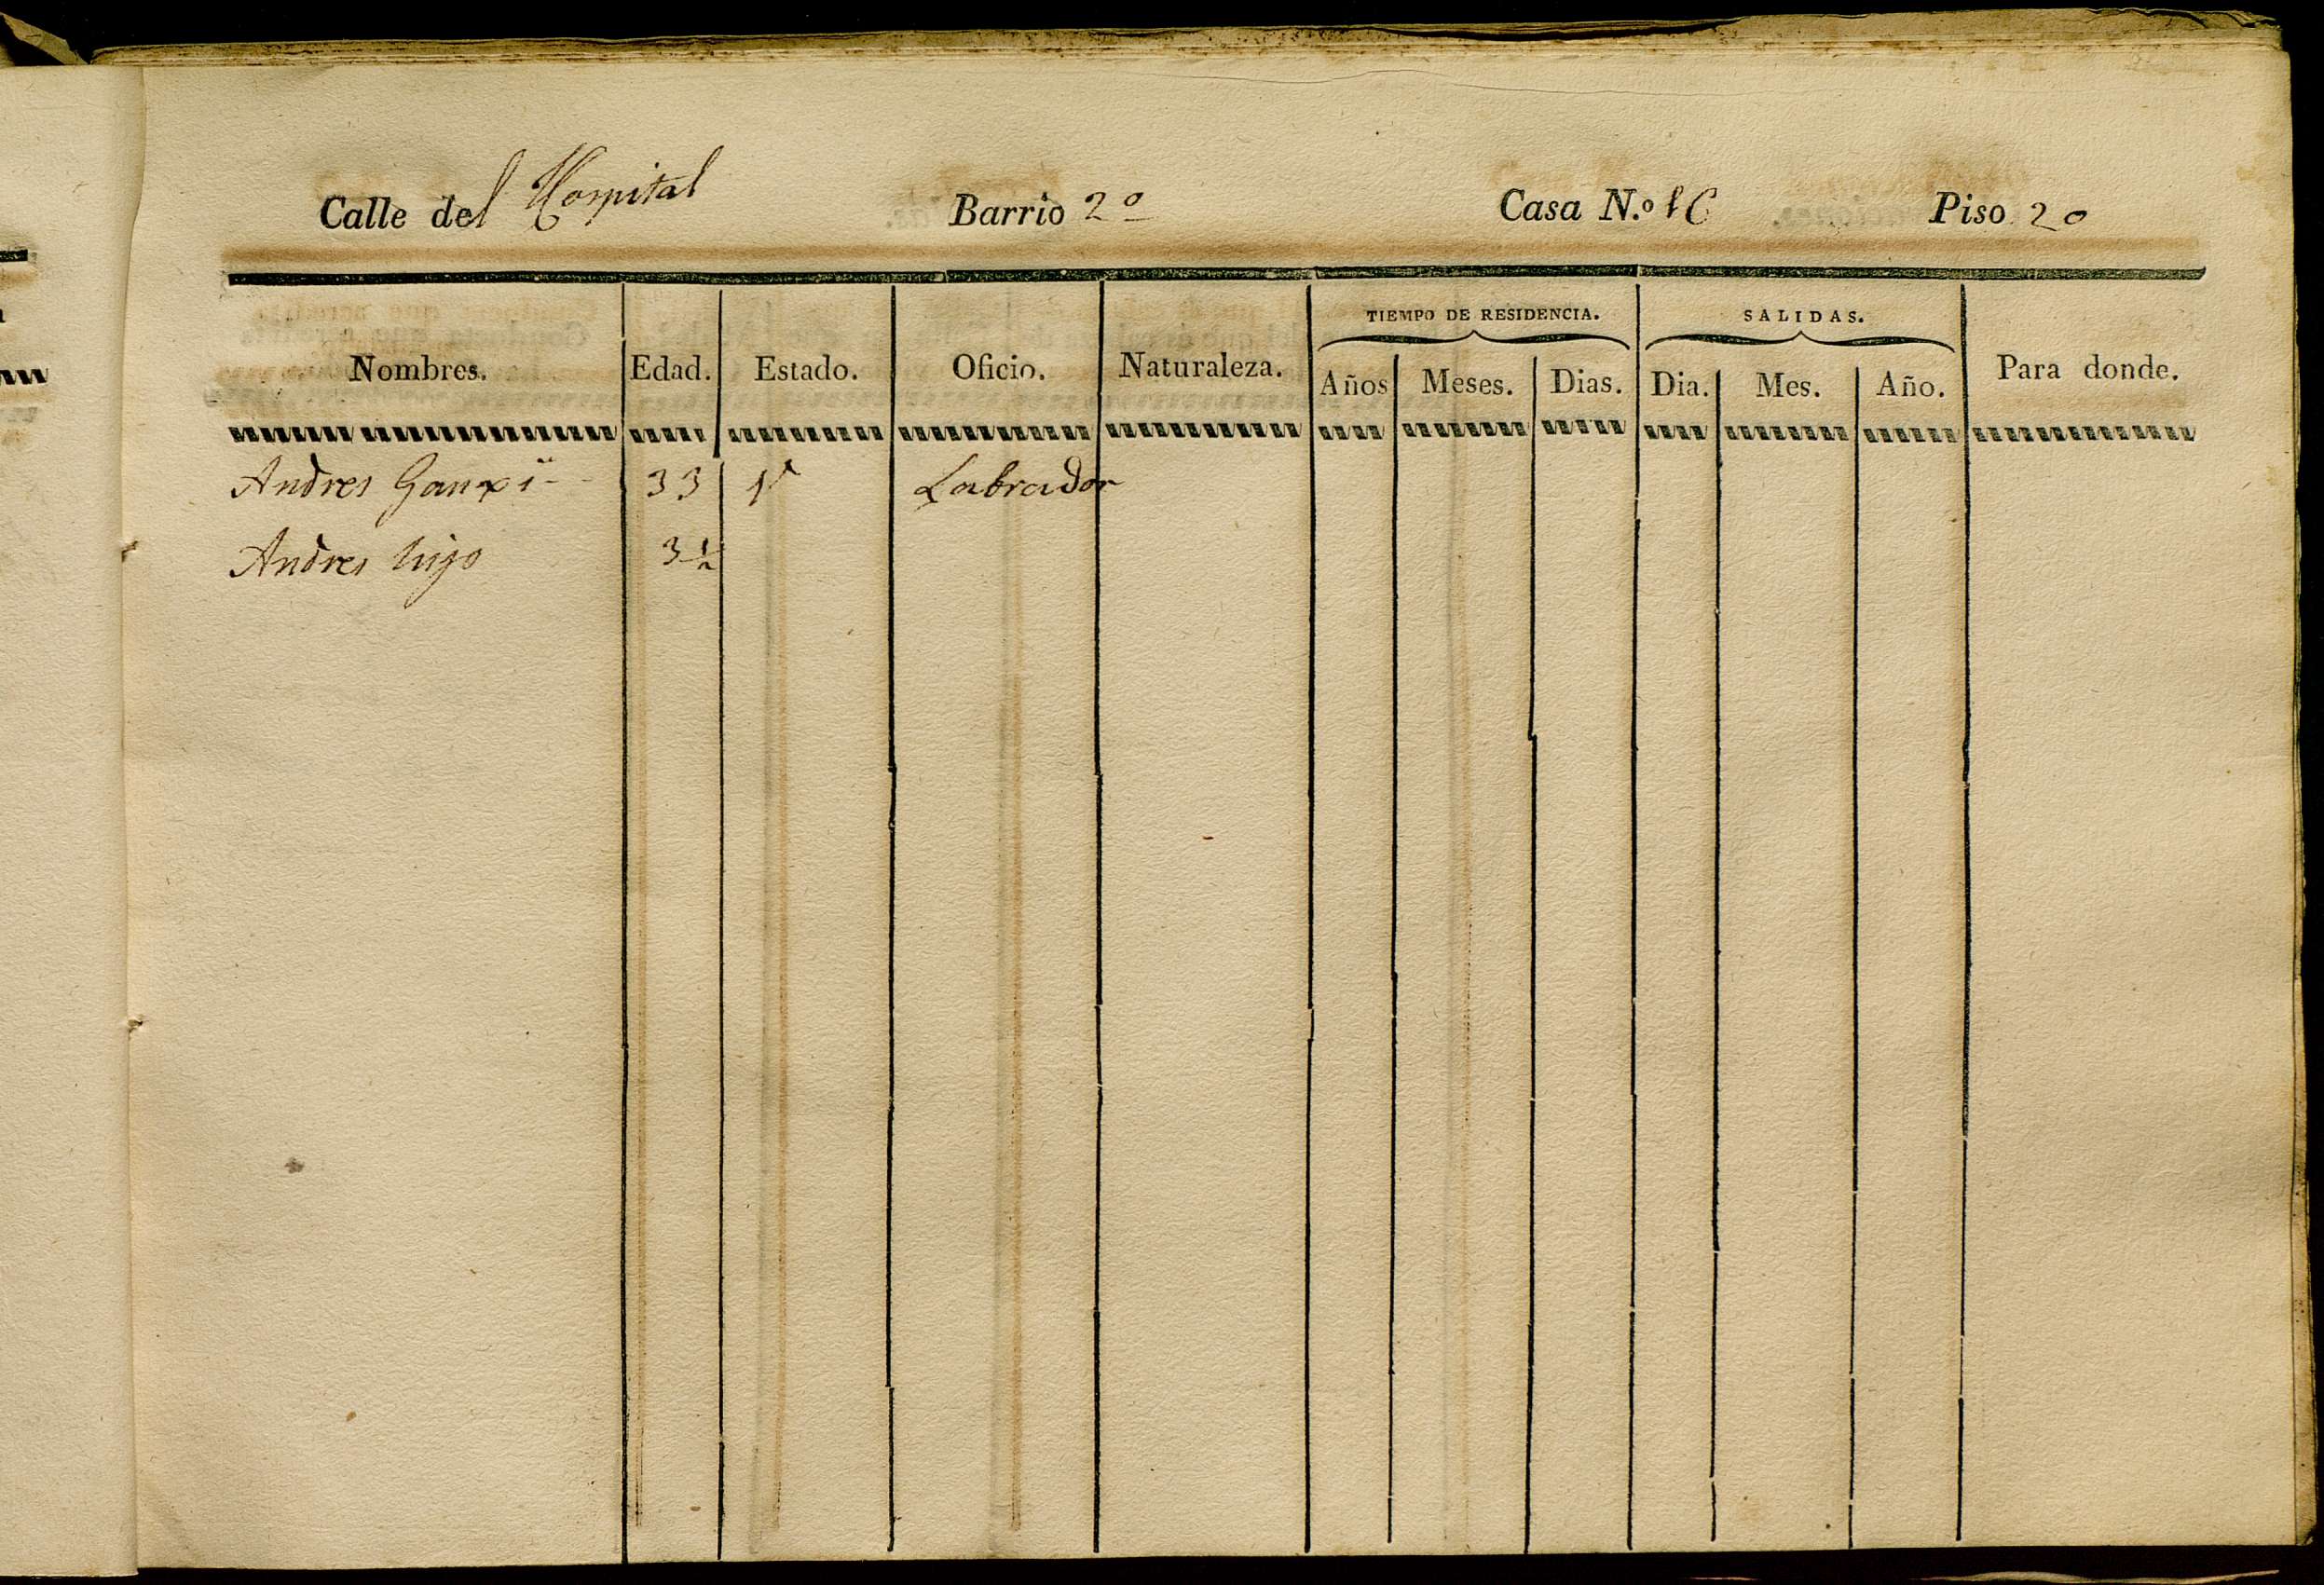 Calle del Hospital Barrio 2º Casa N.º Piso 2º
TIEMPO DE RESIDENCIA. SALIDAS.
Nombres. Edad. Estado. Oficio. Naturaleza. Años Meses. Dias. Dia. Mes. Año. Para donde.
Andres 33 Labrador
Andres hijo 3½